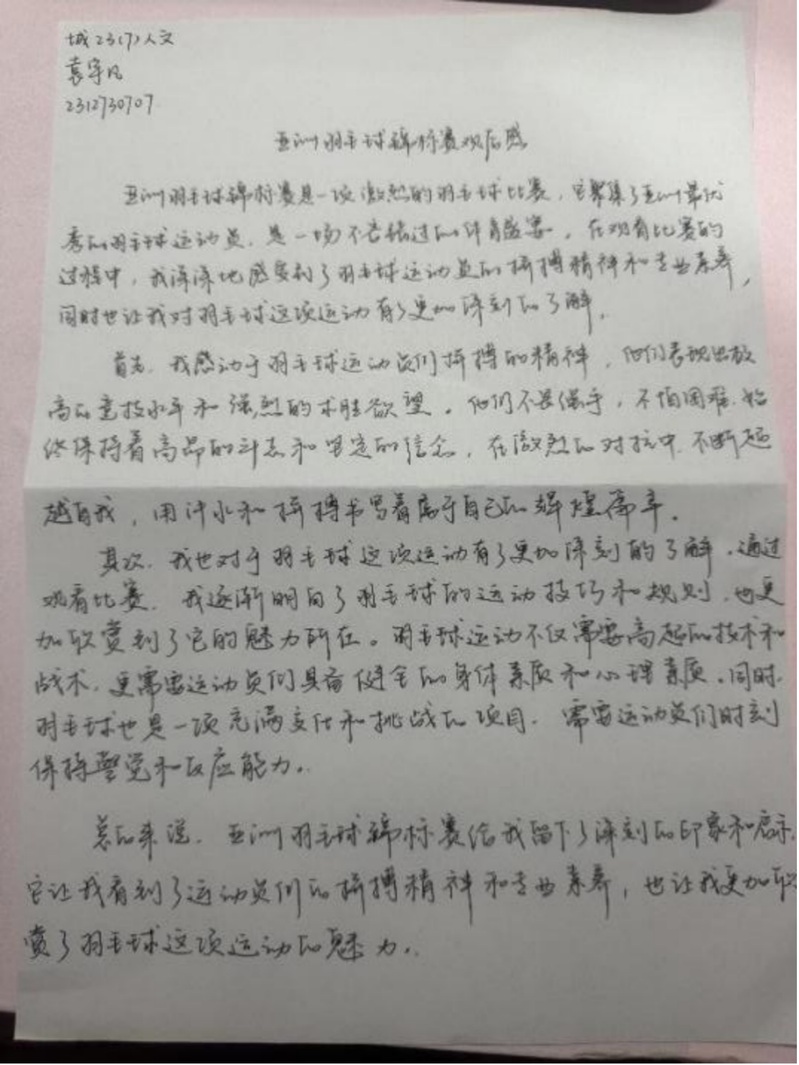 城23(7)人文
袁宇凡
2312730707
亚洲羽毛球锦标赛观后感
亚洲羽毛球锦标赛是一项激烈的羽毛球比赛，它聚集了亚洲最优
秀的羽毛球运动员，是一场不容错过的体育盛宴。在观看比赛的
过程中，我深深地感受到了羽毛球运动员的拼搏精神和专业素养，
同时也让我对羽毛球这项运动有了更加深刻的了解。
首先，我感动于羽毛球运动员们拼搏的精神，他们表现出极
高的竞技水平和强烈的求胜欲望。他们不畏强手，不怕困难，始
终保持着高昂的斗志和坚定的信念，在激烈的对抗中，不断超
越自我，用汗水和拼搏书写着属于自己的辉煌篇章。
其次，我也对于羽毛球这项运动有了更加深刻的了解。通过
观看比赛，我逐渐明白了羽毛球的运动技巧和规则，也更
加欣赏到了它的魅力所在。羽毛球运动不仅需要高超的技术和
战术，更需要运动员们具备健全的身体素质和心理素质。同时，
羽毛球也是一项充满变化和挑战的项目，需要运动员们时刻
保持警觉和反应能力。
总的来说，亚洲羽毛球锦标赛给我留下了深刻的印象和启示，
它让我看到了运动员们的拼搏精神和专业素养，也让我更加欣
赏了羽毛球这项运动的魅力。